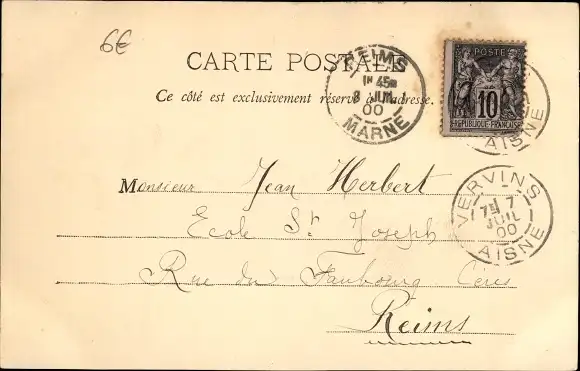 6€
CARTE POSTALE
Ce côté est exclusivement réservé à l'adresse.
REIMS
1H 45
8 JUIL
00
MARNE
POSTE
10
REPUBLIQUE FRANÇAISE
AISNE
VERVINS
7E 7
JUIL
00
AISNE
Monsieur Jean Herbert
Ecole St Joseph
Rue du Faubourg Cérès
Reims